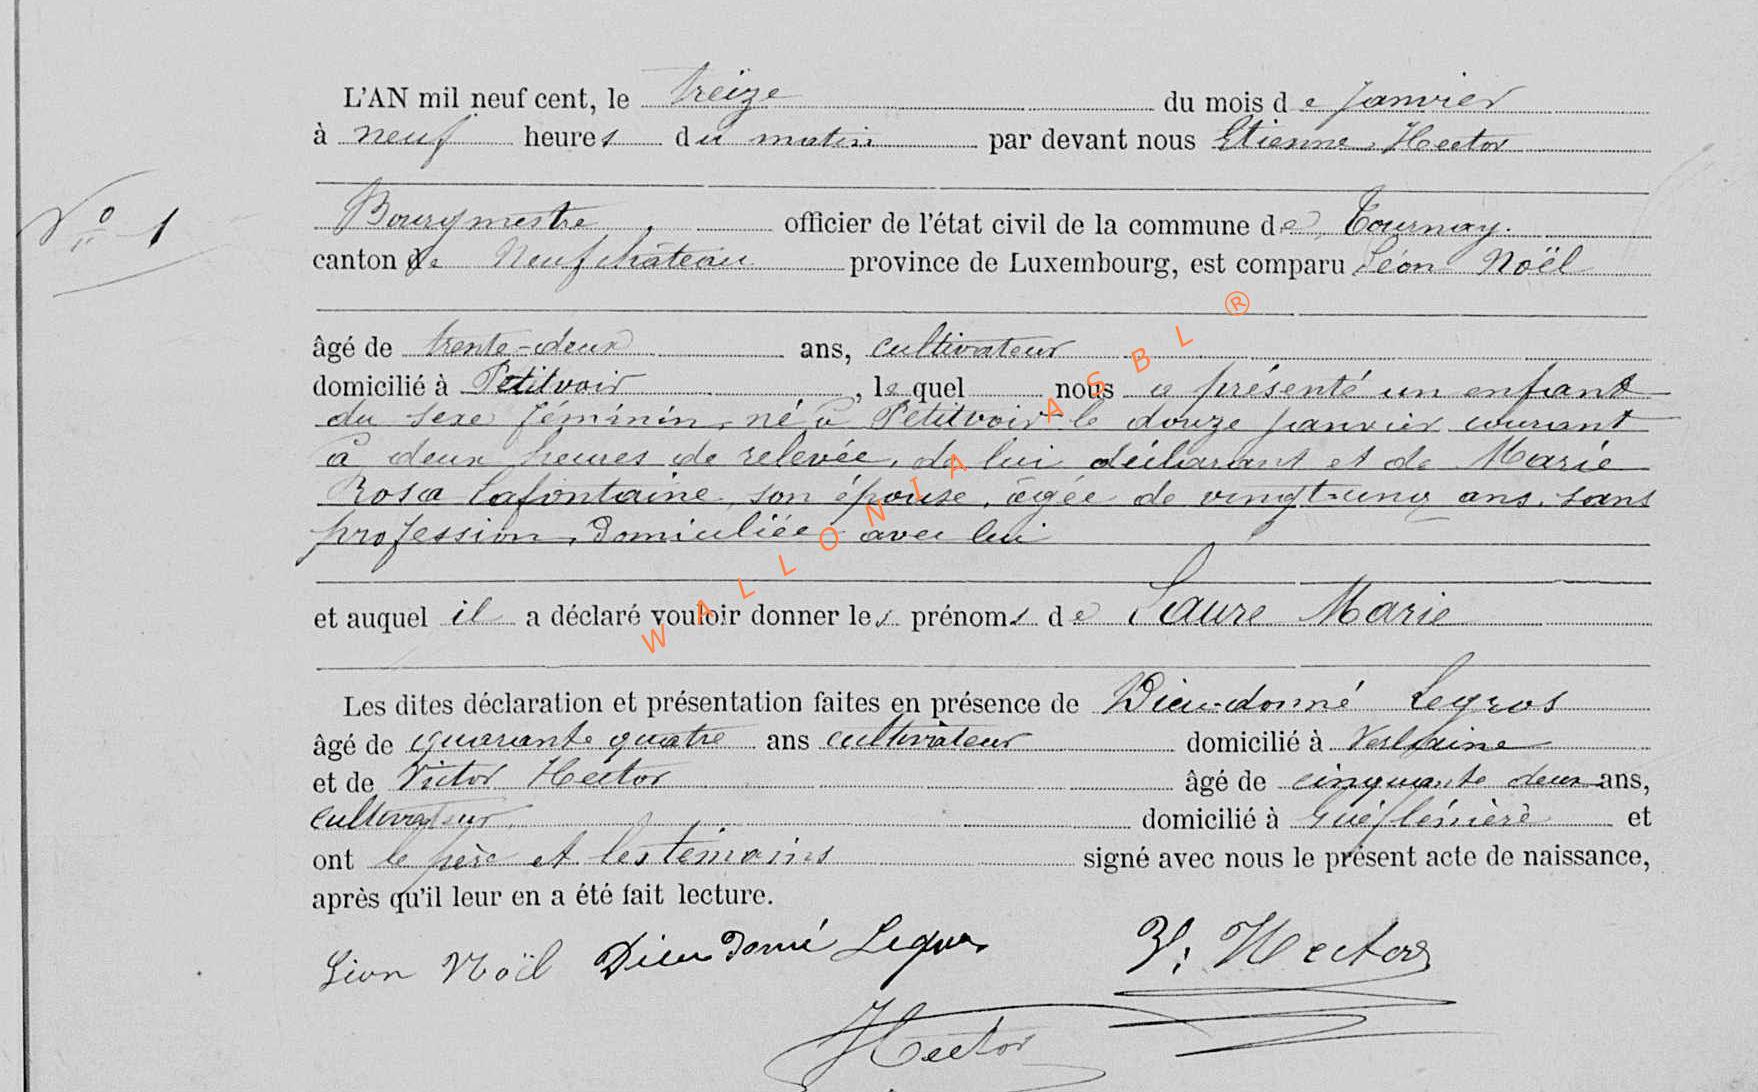 L'AN mil neuf cent, le treize du mois de Janvier
à neuf heures du matin par devant nous Etienne Hector
N° 1
Bourgmestre officier de l'état civil de la commune de Tournay.
canton de Neufchâteau province de Luxembourg, est comparu Léon Noël
âgé de trente-deux ans, cultivateur
domicilié à Petitvoir, lequel nous a présenté un enfant
du sexe féminin, né à Petitvoir le douze janvier courant
à deux heures de relevée, de lui déclarant et de Marie
Rosa Lafontaine, son épouse, âgée de vingt-cinq ans, sans
profession, domiciliée avec lui
et auquel il a déclaré vouloir donner les prénoms de Laure Marie
Les dites déclaration et présentation faites en présence de Dieu-donné Legros
âgé de quarante quatre ans cultivateur domicilié à Verlaine
et de Victor Hector âgé de cinquante deux ans,
cultivateur domicilié à et
ont le père et les témoins signé avec nous le présent acte de naissance,
après qu'il leur en a été fait lecture.
Léon Noël Dieudonné Legros V. Hector
Hector
WALLONIA ASBL ®